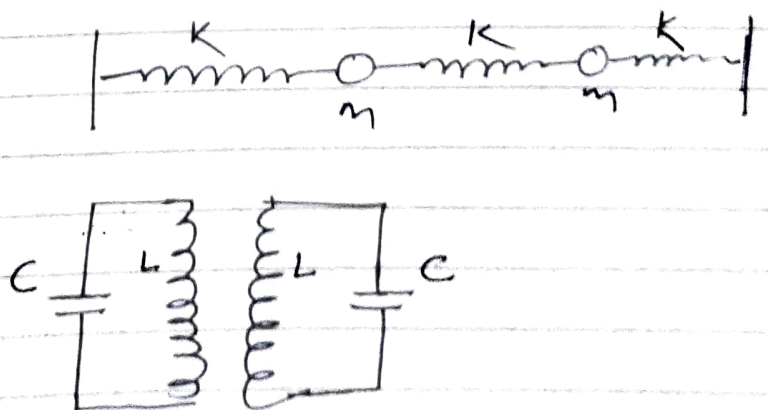 K K K
m m
C L L C